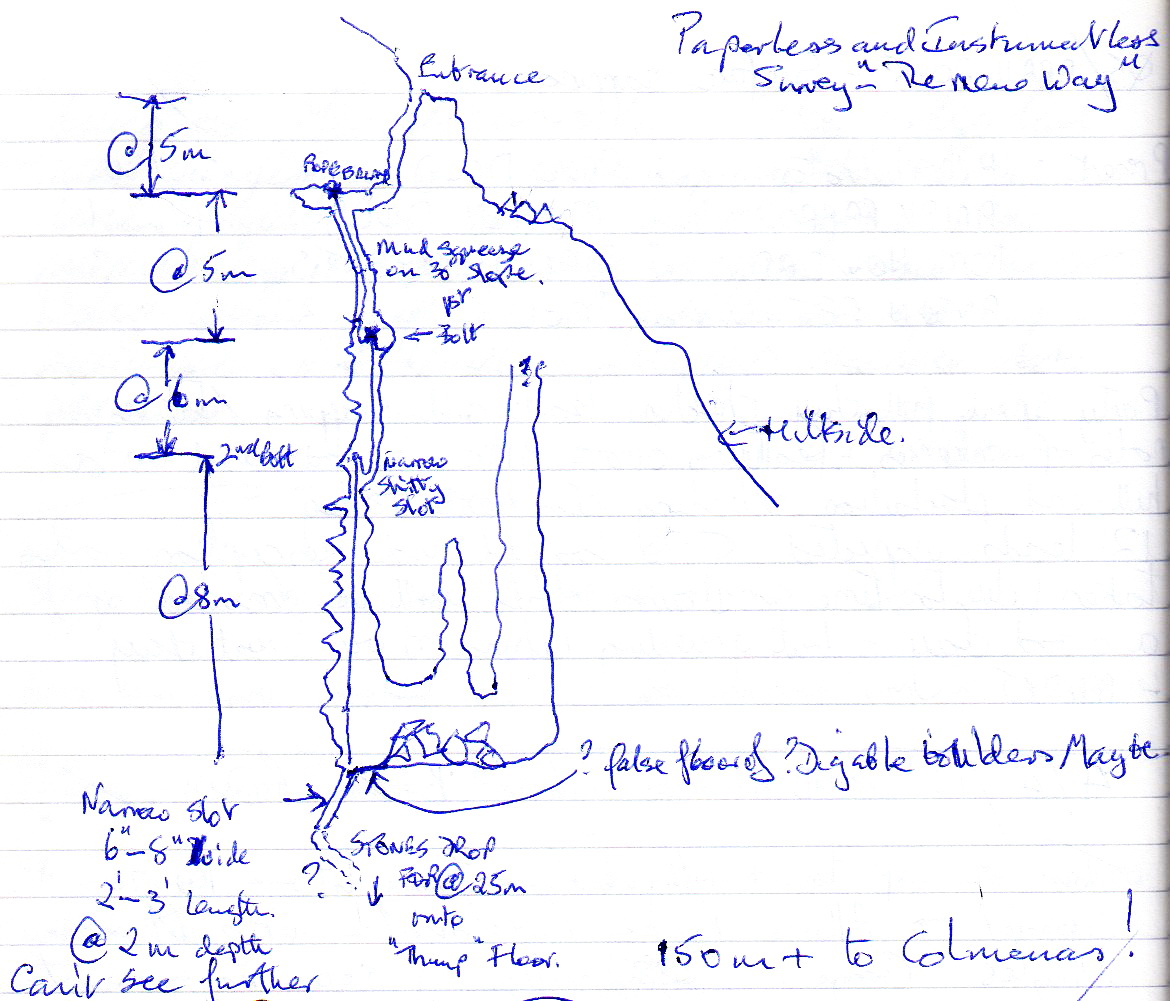 Paperless and Instrumentless
Survey - "Re Meno Way"
Entrance
@ 5m
Rope Belay
@ 5m
Mud Squeeze
on 30° Slope.
1st
Bolt
@ 6m
Hillside.
2nd bolt
Narrow
Shitty
Slot
@ 8m
? false floor of ? Digable boulders Maybe
Narrow Slot
6" - 8" Wide
2' - 3' Length.
@ 2m depth
Can't see further
?
STONES DROP
FOR @ 25m
onto
"Thump" Floor.
150m + to Colmenas!